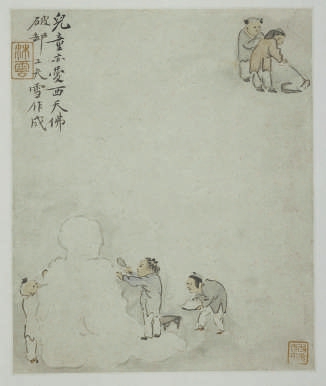 兒童亦愛西天佛
破却工夫雪作成
林雲